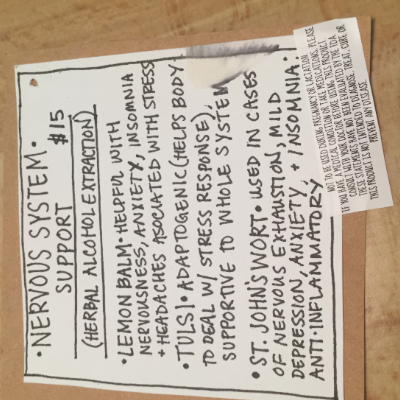 • NERVOUS SYSTEM •
SUPPORT $15
(HERBAL ALCOHOL EXTRACTION)
• LEMON BALM • HELPFUL WITH
NERVOUSNESS, ANXIETY, INSOMNIA
+ HEADACHES ASOCIATED WITH STRESS
• TULSI • ADAPTOGENIC (HELPS BODY
TO DEAL W/ STRESS RESPONSE),
SUPPORTIVE TO WHOLE SYSTEM
• ST. JOHN'S WORT • USED IN CASES
OF NERVOUS EXHAUSTION, MILD
DEPRESSION, ANXIETY, + INSOMNIA.
ANTI-INFLAMMATORY
NOT TO BE USED DURING PREGNANCY OR LACTATION.
IF YOU HAVE A MEDICAL CONDITION OR TAKE MEDICATIONS, PLEASE
CONSULT WITH YOUR DOCTOR BEFORE USING THIS PRODUCT.
THESE STATEMENTS HAVE NOT BEEN EVALUATED BY THE FDA.
THIS PRODUCT IS NOT INTENDED TO DIAGNOSE, TREAT, CURE OR
PREVENT ANY DISEASE.